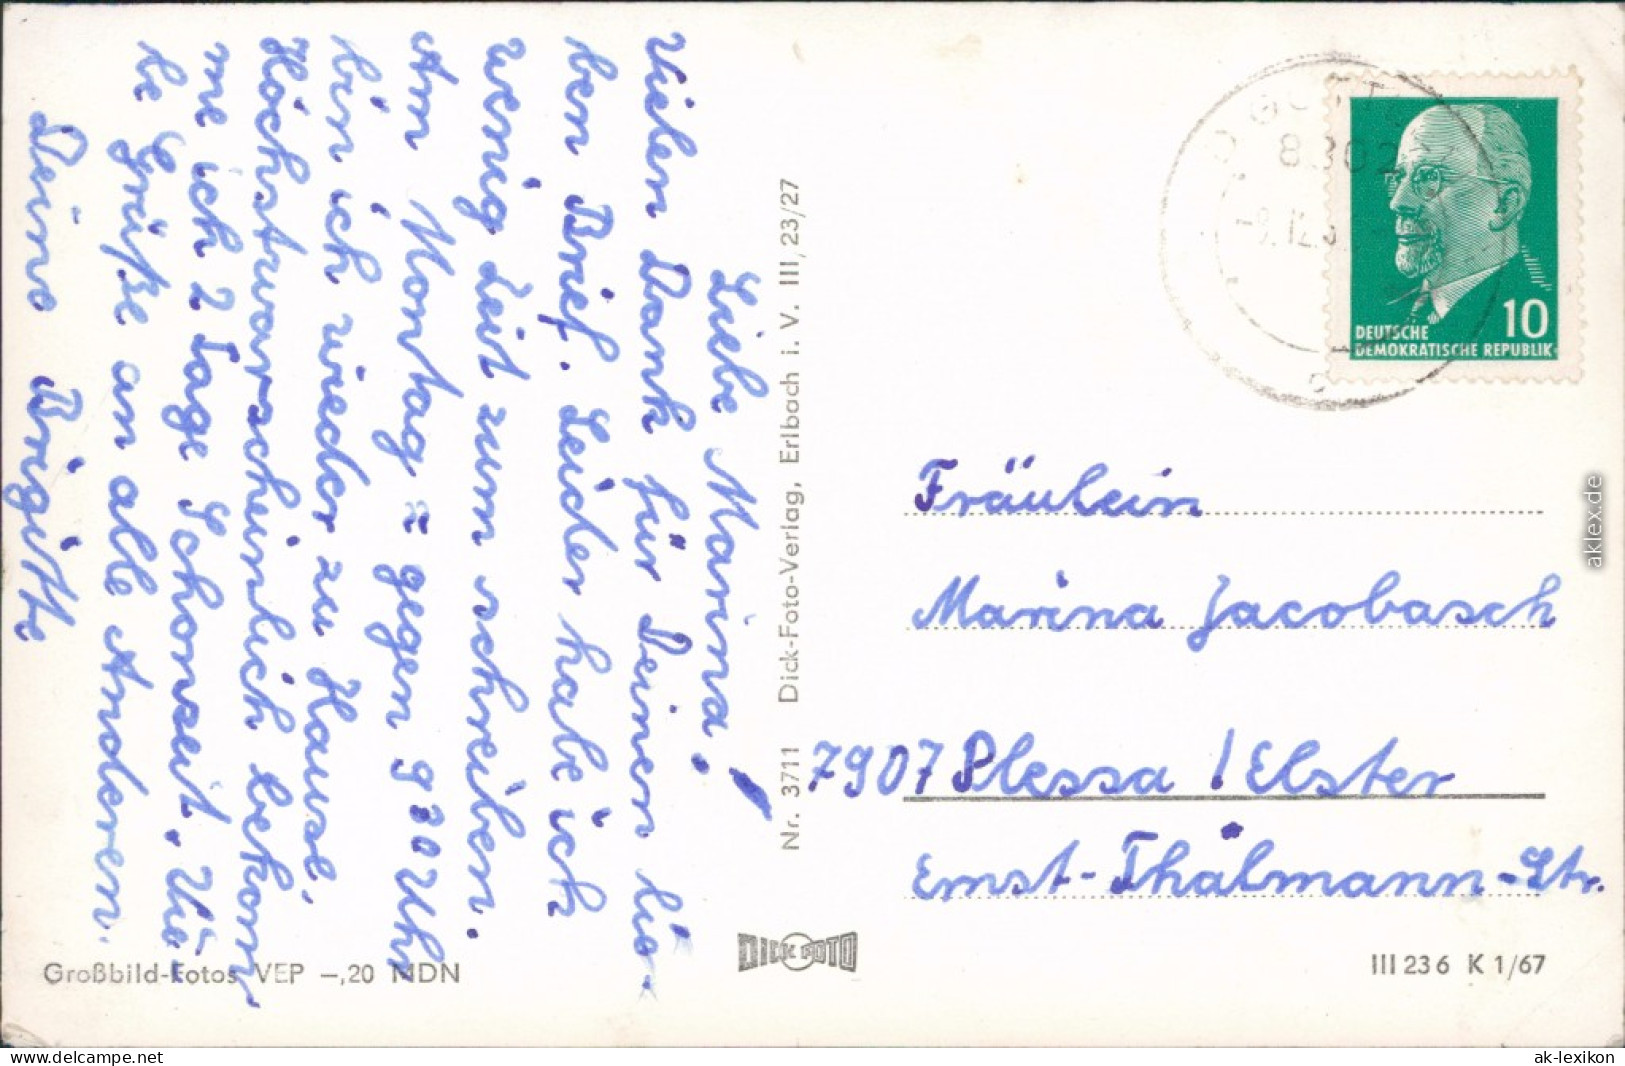 Liebe Marina!
Vielen Dank für Deinen lie-
ben Brief. Leider habe ich
wenig Zeit zum schreiben.
Am Montag = gegen 9 30 Uhr
bin ich wieder zu Hause.
Höchstwarscheinlich bekom
me ich 2 Tage Schonzeit. Vie-
le Grüße an alle Anderen.
Deine Brigitte
Großbild-Fotos VEP -,20 MDN
Nr. 3711 Dick-Foto-Verlag, Erlbach i. V. III/23/27
DICK FOTO
10
DEUTSCHE
DEMOKRATISCHE REPUBLIK
Fräulein
Marina Jacobasch
7907 Plessa / Elster
Ernst-Thälmann-Str.
III 23 6 K 1/67
aklex.de
www.delcampe.net
ak-lexikon